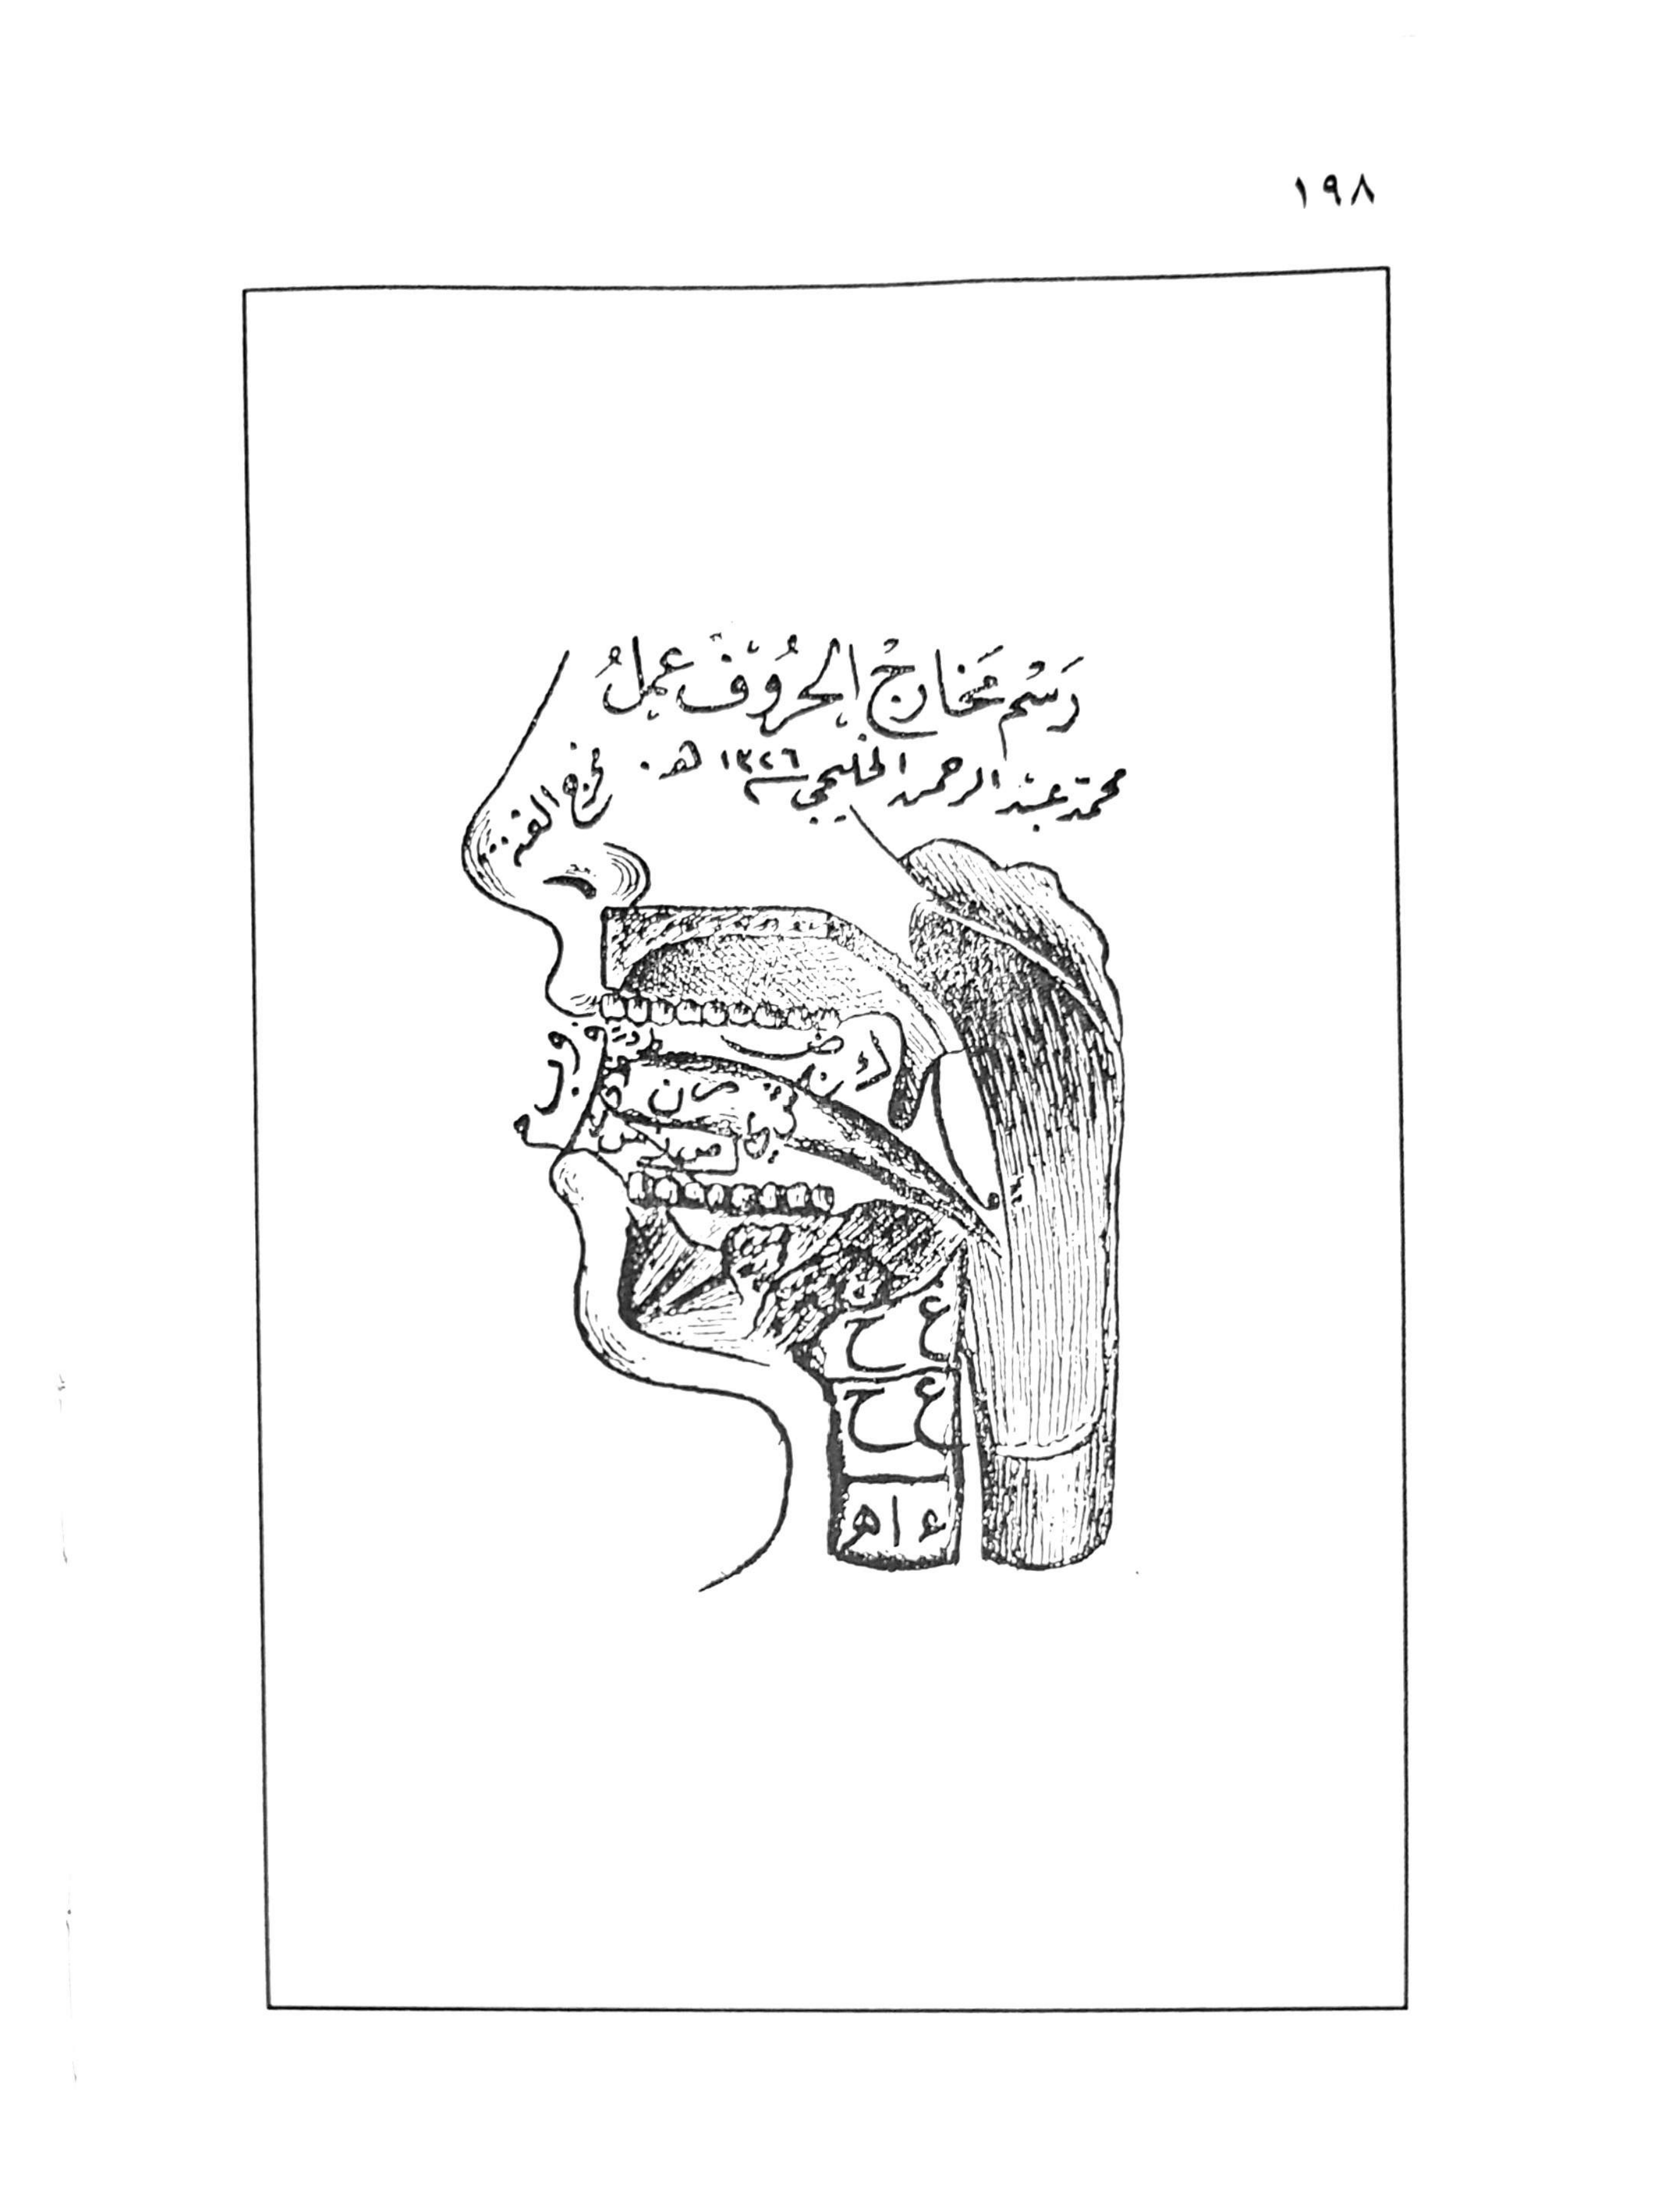 ١٩٨
رَسْم مَخَارِجُ الحُرُوف عَمِلُ
محمّد عبد الرحمن الخليجي سنة ١٣٢٦ هـ.
مخرج الغنة
ك ض
ر ن
ص س
ع ح
ع ح
ء ا ه